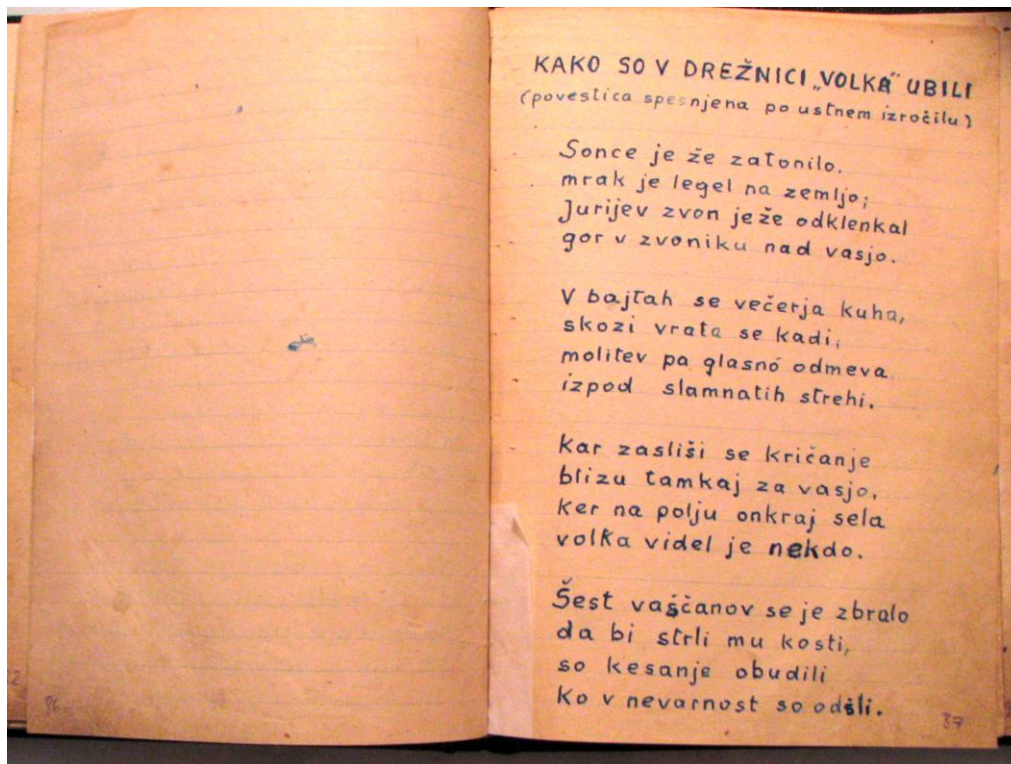 KAKO SO V DREŽNICI „VOLKA" UBILI
(povestica spesnjena po ustnem izročilu)
Sonce je že zatonilo.
mrak je legel na zemljo;
Jurijev zvon je že odklenkal
gor v zvoniku nad vasjo.
V bajtah se večerja kuha,
skozi vrata se kadi,
molitev pa glasno odmeva
izpod slamnatih strehi.
Kar zasliši se kričanje
blizu tamkaj za vasjo,
ker na polju onkraj sela
volka videl je nekdo.
Šest vaščanov se je zbralo
da bi strli mu kosti,
so kesanje obudili
ko v nevarnost so odšli.
86
87